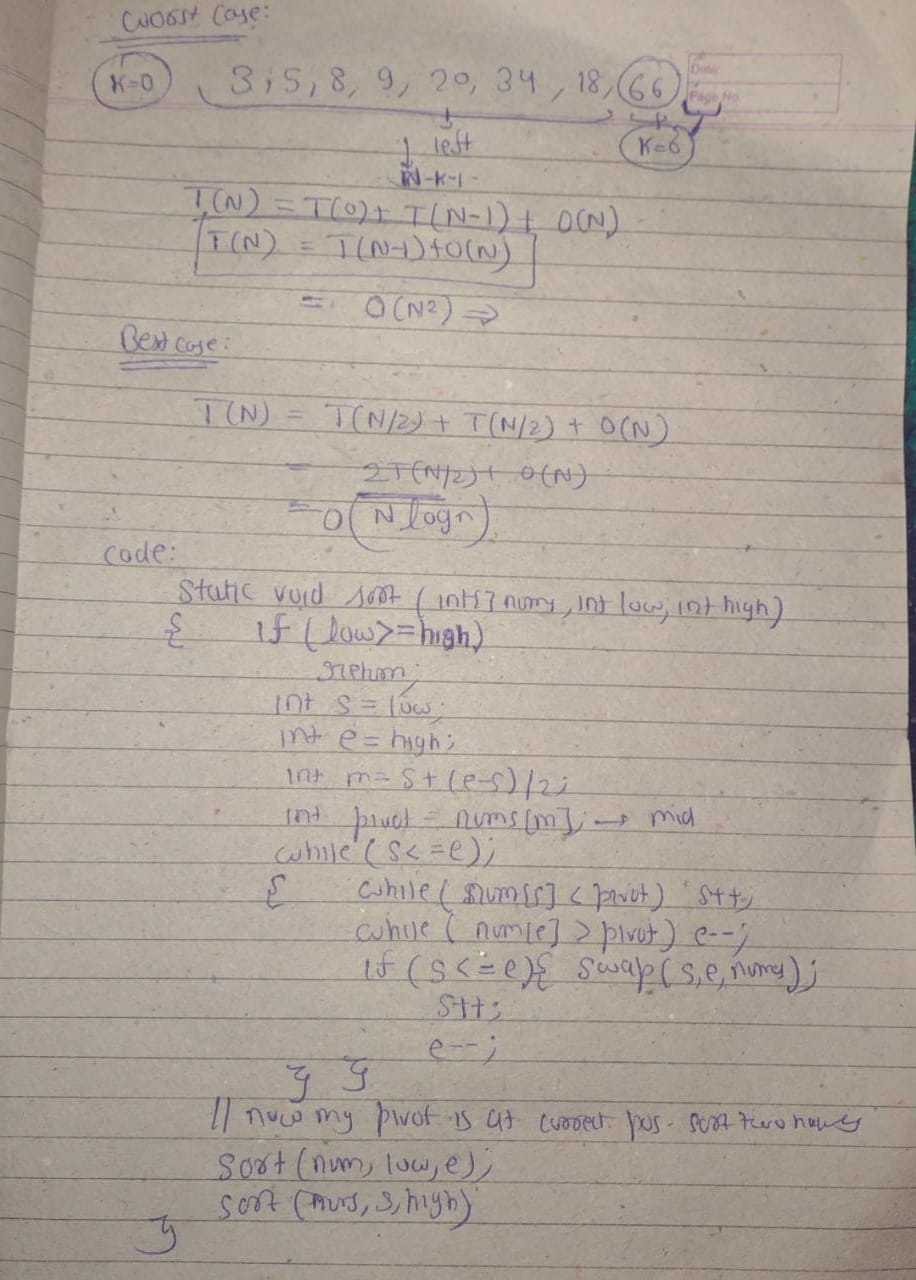 Worst Case:
K=0 3, 5, 8, 9, 20, 34, 18, 66
Date:
Page No.
left K=0
N-K-1
T(N) = T(0) + T(N-1) + O(N)
T(N) = T(N-1) + O(N)
= O(N²) ⇒
Best case:
T(N) = T(N/2) + T(N/2) + O(N)
= 2T(N/2) + O(N)
= O(N logn)
code:
static void sort (int[] nums, int low, int high)
{ if (low>=high)
return;
int s = low;
int e = high;
int m = s + (e-s)/2;
int pivot = nums[m]; → mid
while (s<=e);
{ while (num[s] < pivot) s++;
while (num[e] > pivot) e--;
if (s<=e){ swap(s,e,nums);
s++;
e--;
} }
// now my pivot is at correct pos. sort two halves
sort (num, low, e);
sort (nums, s, high)
}